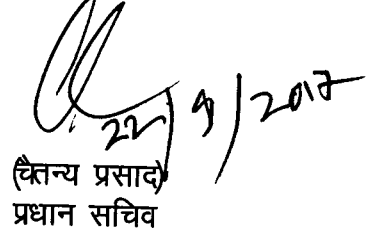 22/9/2017
(चैतन्य प्रसाद)
प्रधान सचिव